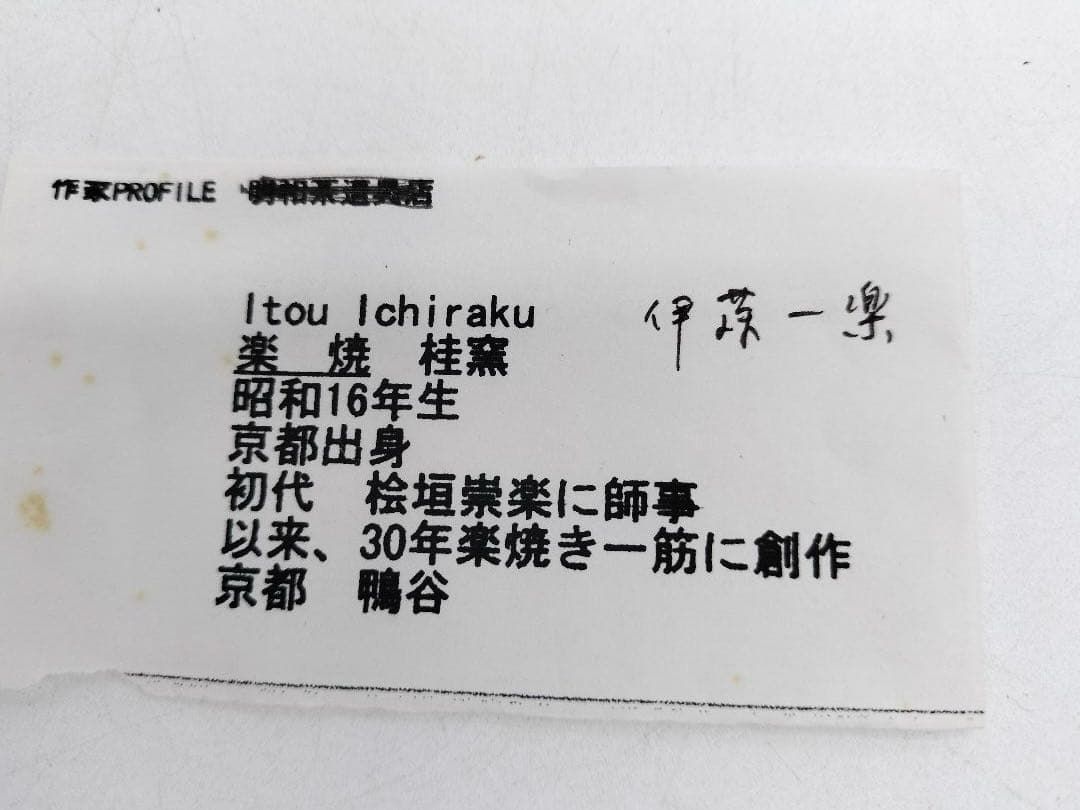 作家PROFILE
Itou Ichiraku 伊藤一楽
楽 焼 桂窯
昭和16年生
京都出身
初代 桧垣崇楽に師事
以来、30年楽焼き一筋に創作
京都 鴨谷